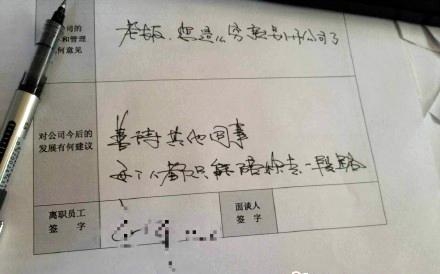 公司的
和管理
何意见
老板,想这么 公司了
对公司今后的
发展有何建议
善待其他同事
每个人都只能陪你走一段路
离职员工
签 字
面谈人
签 字